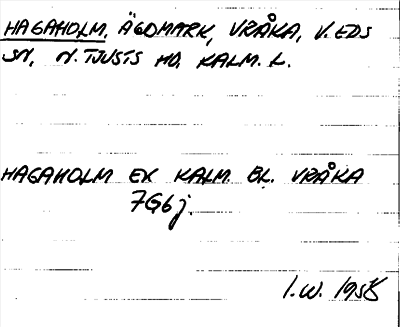 HAGAHOLM, ÄGOMARK, VRÅKA, V. EDS
SN, N. TJUSTS HD, KALM. L.
HAGAHOLM EX KALM. BL. VRÅKA
7G6j.
I.W. 1958